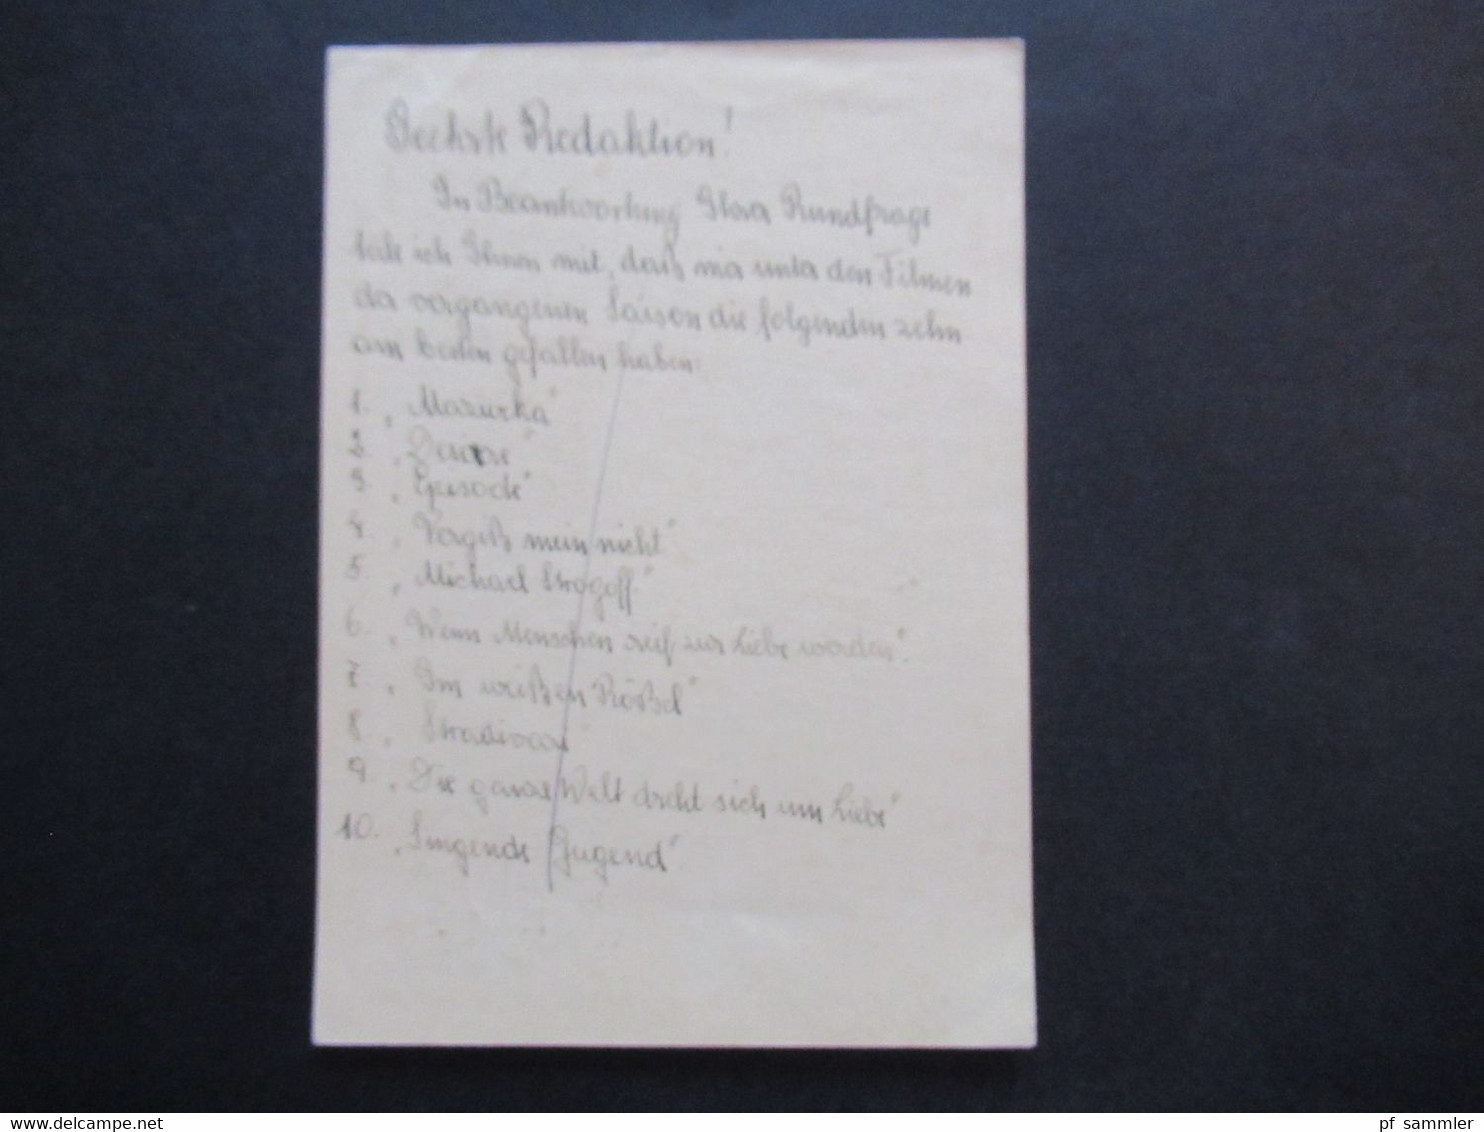 Geehrte Redaktion!
In Beantwortung Ihrer Rundfrage
teile ich Ihnen mit, daß mir unter den Filmen
der vergangenen Saison die folgenden zehn
am besten gefallen haben:
1. „Mazurka"
2. „Desirée"
3. „Episode"
4. „Vergiß mein nicht"
5. „Michael Strogoff"
6. „Wenn Menschen reif zur Liebe werden".
7. „Im weißen Rößl"
8. „Stradivari"
9. „Die ganze Welt dreht sich um Liebe"
10. „Singende Jugend"
delcampe.net
pf sammler